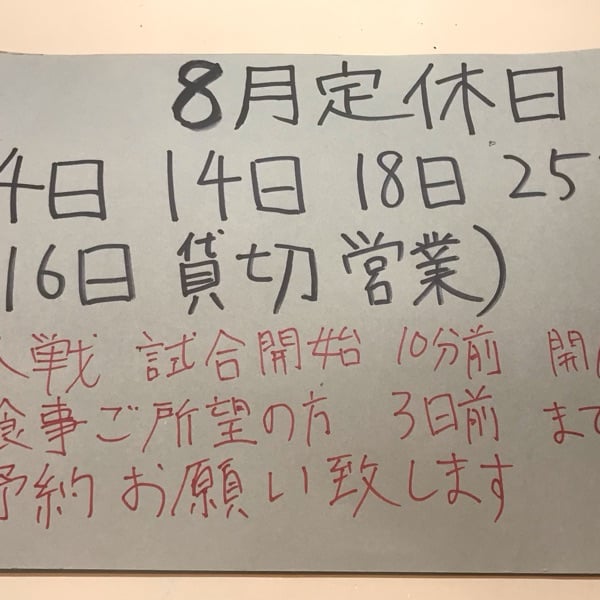 8月定休日
4日 14日 18日 25
16日 貸切 営業)
戦 試合開始 10分前 開
食事ご所望の方 3日前 まで
予約お願い致します